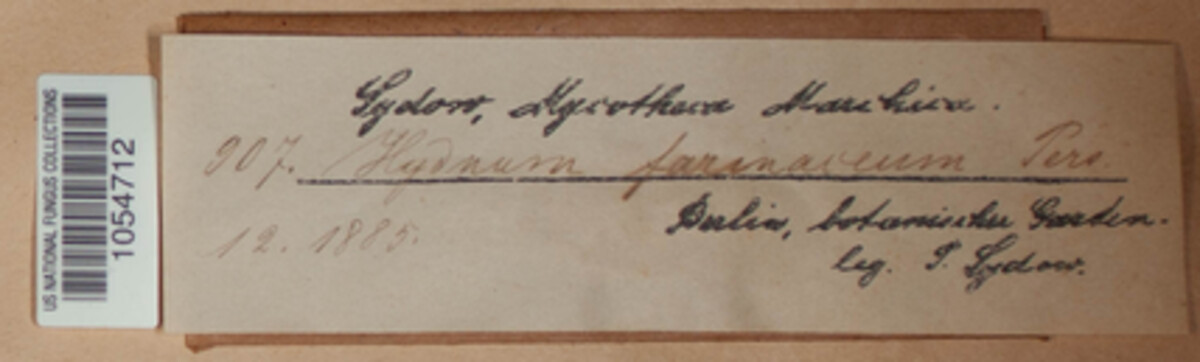 US NATIONAL FUNGUS COLLECTIONS
1054712
Sydow, Mycotheca Marchica.
907. Hydnum farinaceum Pers.
12. 1885.
Berlin, botanischer Garten.
leg. P. Sydow.